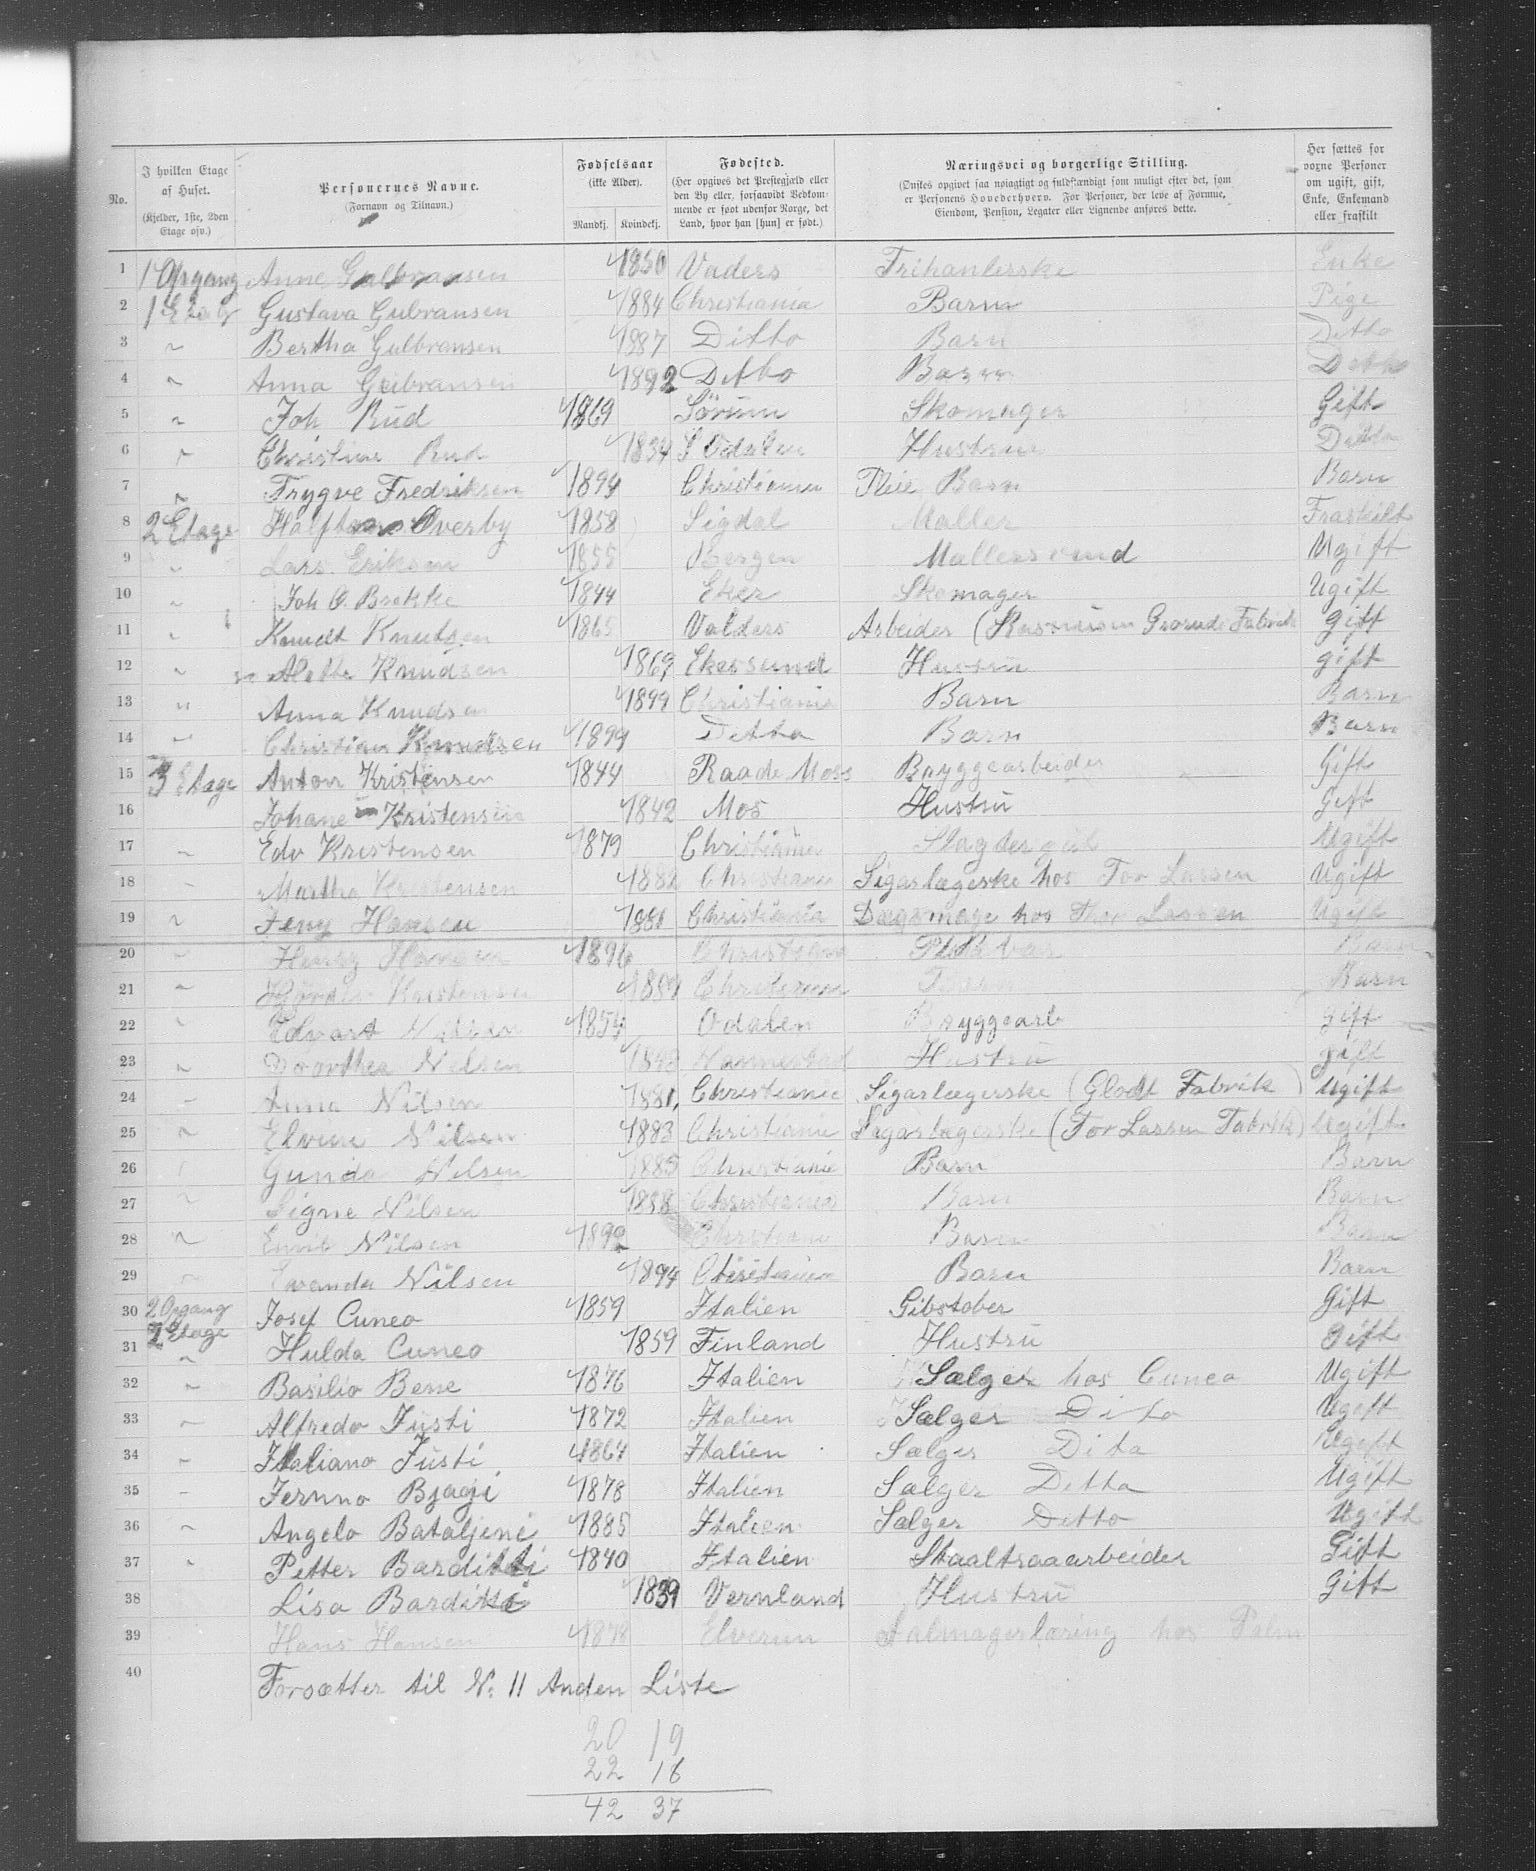 No.
I hvilken Etage af Huset. (Kjelder, 1ste, 2den Etage osv.)
Personernes Navne. (Fornavn og Tilnavn.)
Fødselsaar (ikke Alder). Mandkj. Kvindekj.
Fødested. (Her opgives det Prestegjæld eller den By eller, forsaavidt Vedkommende er født udenfor Norge, det Land, hvor han [hun] er født.)
Næringsvei og borgerlige Stilling. (Ønskes opgivet saa nøiagtigt og fuldstændigt som muligt efter det, som er Personens Hovederhverv. For Personer, der leve af Formue, Eiendom, Pension, Legater eller Lignende anføres dette.)
Her sættes for voxne Personer om ugift, gift, Enke, Enkemand eller fraskilt
1 1 Opgang Anne Gulbransen 1850 Vaders Frihanlerske Enke
2 1 Etag Gustava Gubransen 1884 Christiania Barn Pige
3 " Bertha Gulbransen 1887 Ditto Barn Ditto
4 " Anna Gulbransen 1892 Ditto Barn Ditto
5 " Joh Rud 1869 Sørum Skomager Gift
6 " Christine Rud 1834 S Odalen Hustru Ditto
7 " Trygve Fredriksen 1894 Christiania Pleie Barn Barn
8 2 Etage Halftan Overby 1858 Sigdal Maller Fraskilt
9 " Lars Eriksen 1855 Bergen Mallersvend Ugift
10 " Joh O. Brekke 1844 Eker Skomager Ugift
11 " Knudt Knutsen 1865 Valders Arbeider (Rasmusen Grorude Fabrik gift
12 " Alethe Knudsen 1869 Ekersund Husstru gift
13 " Anna Knudsen 1899 Christiania Barn Barn
14 " Christian Knudsen 1899 Ditto Barn Barn
15 3 Etage Anton Kristensen 1844 Raade Moss Bryggearbeider Gift
16 Johane Kristensen 1842 Mos Hustrü Gift
17 " Edv Kristensen 1879 Christiania Ugift
18 " Martha Kristensen 1882 Christiania Sigarlægerske hos Tor Lassen Ugift
19 " Jeny Hansen 1881 Christiania hos Thor Lassen Ugift
20 " Hansen 1896 Christiania Barn
21 " Kristensen Christiania Barn Barn
22 " Edvart Nilsen 1854 Odalen Bryggearb gift
23 " Dorothea Nilsen 1843 Nannestad Hustrü gift
24 " Anna Nilsen 1881 Christianie Sigarlægerske (Glodt Fabrik) ugift
25 " Elvine Nilsen 1883 Christianie Sigarlægerske (Tor Lassen Fabrik) ugift
26 " Gunda Nilsen 1885 Christianie Barn Barn
27 " Signe Nilsen 1888 Christiania Barn Barn
28 " Emil Nilsen 1892 Christiane Barn Barn
29 " Evanda Nilsen 1894 Christiania Barn Barn
30 2 Opgang Josef Cuneo 1859 Italien Gibstøber Gift
31 1 Etage " Hulda Cuneo 1859 Finland Hustrü Gift
32 " Basilio Bene 1876 Italien Sælger hos Cuneo Ugift
33 " Alfredo Jüsti 1872 Italien Sælger Dito Ugift
34 " Italiano Jüsti 1867 Italien Sælger Dito Ugift
35 " Jerunno Bjagi 1878 Italien Sælger Ditto Ugift
36 " Angelo Bataljeni 1885 Italien Sælger Ditto Ugift
37 " Petter Barditti 1840 Italien Staaltraaarbeider Gift
38 Lisa Barditti 1839 Vernland Hustrü Gift
39 Hans Hansen 1878 Elverum Salmagerlæring hos Palm
40 Forsætter til N: 11 Anden Liste
20 19
22 18
42 37